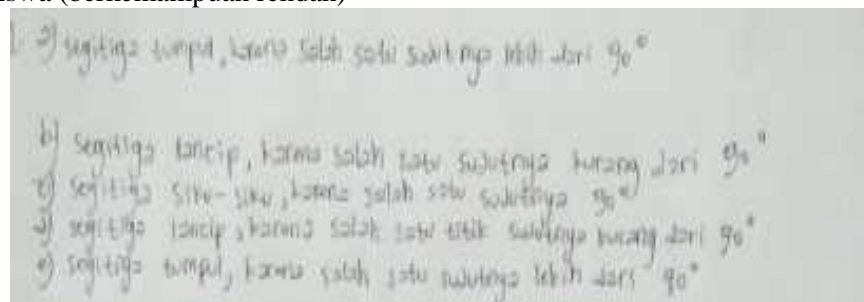 siswa (berkemampuan rendah)
1. a) segitiga tumpul, karena salah satu sudutnya lebih dari 90°
b) segitiga lancip, karena salah satu sudutnya kurang dari 90°
c) segitiga siku-siku, karena salah satu sudutnya 90°
d) segitiga lancip, karena salah satu titik sudutnya kurang dari 90°
e) segitiga tumpul, karena salah satu sudutnya lebih dari 90°